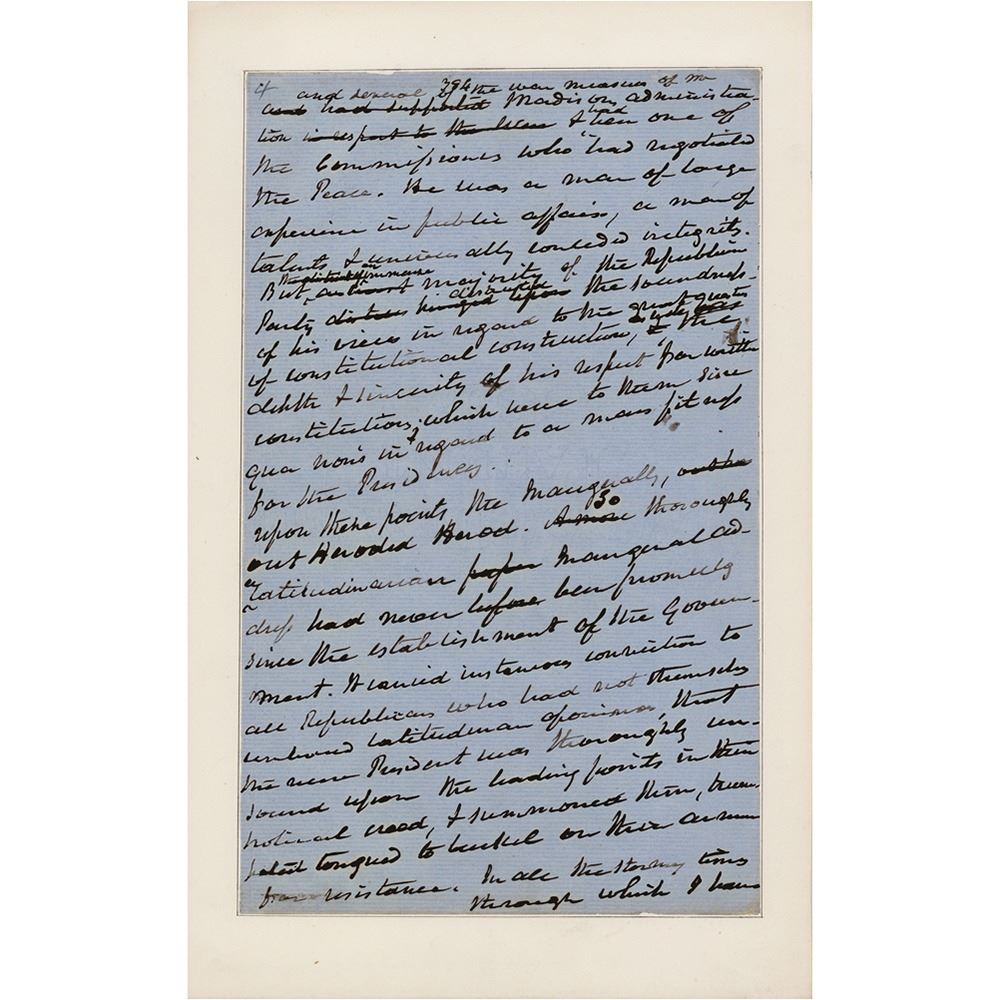 394
it and several of the war measures of Mr
and had supported Madisons administra-
tion in respect to the War & had been one of
the Commissioners who had negotiated
the Peace. He was a man of large
experience in public affairs, a man of
talents & universally conceded integrity.
But, an immense majority of the Republican
Party distrusted the soundness
of his views in regard to the great question
of constitutional construction, & the
depth & sincerity of his respect for written
constitutions, which were to them sine
qua non's in regard to a mans fitness
for the Presidency.
upon these points the Inaugural,
out Heroded Herod. A more So thoroughly
latitudinarian paper Inaugural ad-
dress had never before been promulg
since the establishment of the Govern-
ment. It carried instaneous conviction to
all Republicans who had not themselves
latitudinarian opinions, that
the new President was thoroughly un-
sound upon the leading points in their
political creed, & summoned them, trum-
pet tongued to buckel on their armour
for resistance. In all the stormy times
through which I have